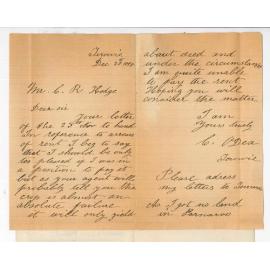 Dec 28
Mr C R Hodge
Dear sir
Your letter
of the 23rd to hand
In reference to arears
of rent I beg to say
that I should be only
too pleased if I was in
a position to pay it
but as your agent will
probably tell you the
crop is almost an
absolute failure
it will only yield
about seed and
under the circumstances
I am quite unable
to pay the rent
Hoping you will
consider the matter
I am
Yours truly
C. O'Dea
Please adress
my letters to
As I got no land
in